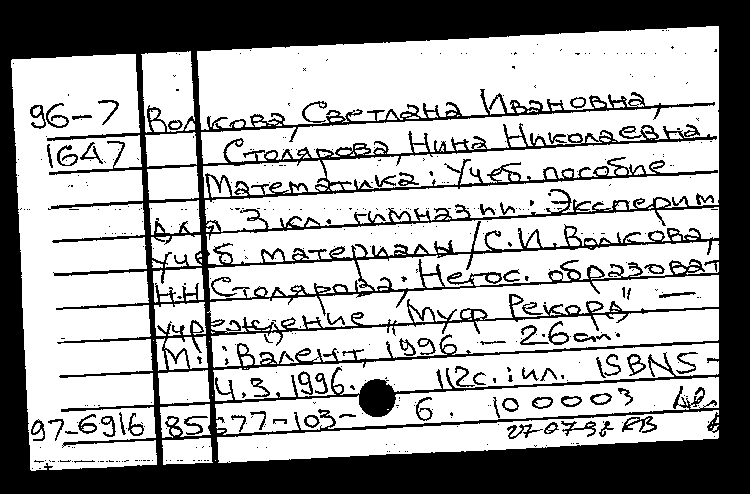 96-7 Волкова, Светлана Ивановна,
1647 Столярова, Нина Николаевна.
Математика: Учеб. пособие
для 3 кл. гимназии: Эксперим.
учеб. материалы / С.И. Волкова,
Н.Н Столярова; Негос. образоват
учреждение „Муф Рекорд". —
М.: Валент, 1996. — 26 см.
Ч. 3. 1996. 112с.: ил. ISBN5-
97-6916 85677-103- 6. 100003
27-07-98